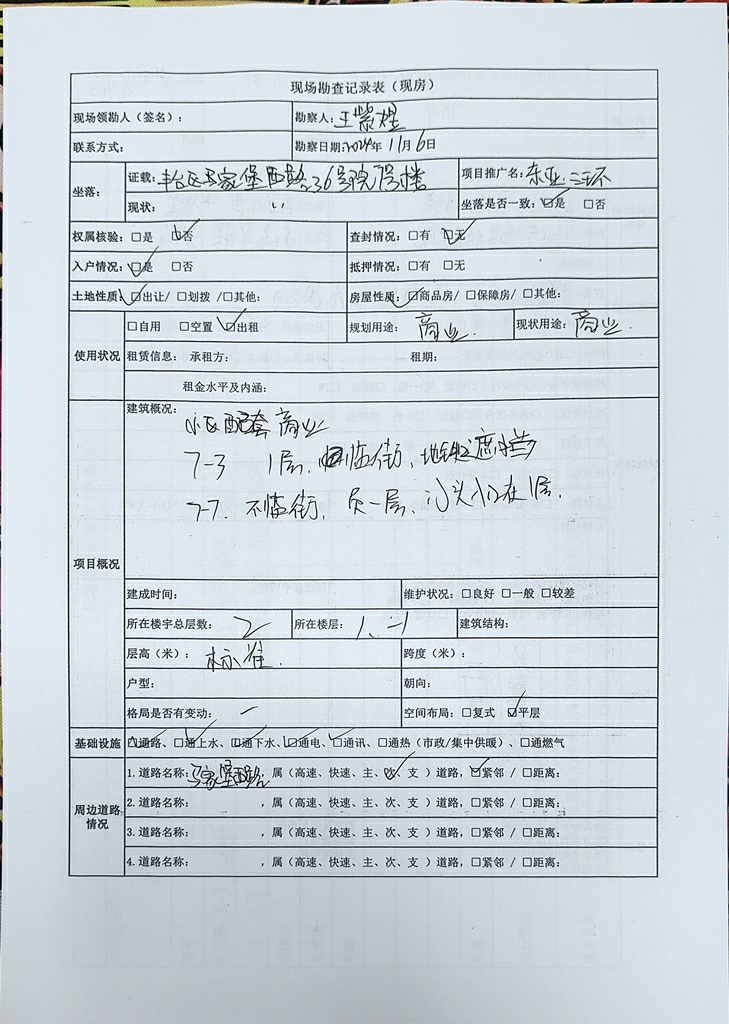 现场勘查记录表（现房）
现场领勘人（签名）： 勘察人：王
联系方式： 勘察日期：2024年11月6日
坐落： 证载：丰台区马家堡西路36号院7号楼 项目推广名：东亚三环
现状： 〃 坐落是否一致：☑是 □否
权属核验：□是 ☑否 查封情况：□有 ☑无
入户情况：☑是 □否 抵押情况：□有 □无
土地性质：☑出让/ □划拨 / □其他： 房屋性质：☑商品房/ □保障房/ □其他：
使用状况 □自用 □空置 ☑出租 规划用途：商业. 现状用途：商业.
租赁信息： 承租方： 租期：
租金水平及内涵：
项目概况 建筑概况：
小区配套商业
7-3 1层, 临街, 遮挡
7-7. 不临街, 负一层, 在1层.
建成时间： 维护状况：□良好 □一般 □较差
所在楼宇总层数：2 所在楼层：1、-1 建筑结构：
层高（米）：标准. 跨度（米）：
户型： 朝向：
格局是否有变动：一 空间布局：□复式 ☑平层
基础设施 ☑通路、☑通上水、☑通下水、☑通电、☑通讯、□通热（市政/集中供暖）、□通燃气
周边道路情况 1.道路名称：马家堡西路，属（高速、快速、主、次、支 ）道路，☑紧邻 / □距离：
2.道路名称： ，属（高速、快速、主、次、支 ）道路，□紧邻 / □距离：
3.道路名称： ，属（高速、快速、主、次、支 ）道路，□紧邻 / □距离：
4.道路名称： ，属（高速、快速、主、次、支 ）道路，□紧邻 / □距离：